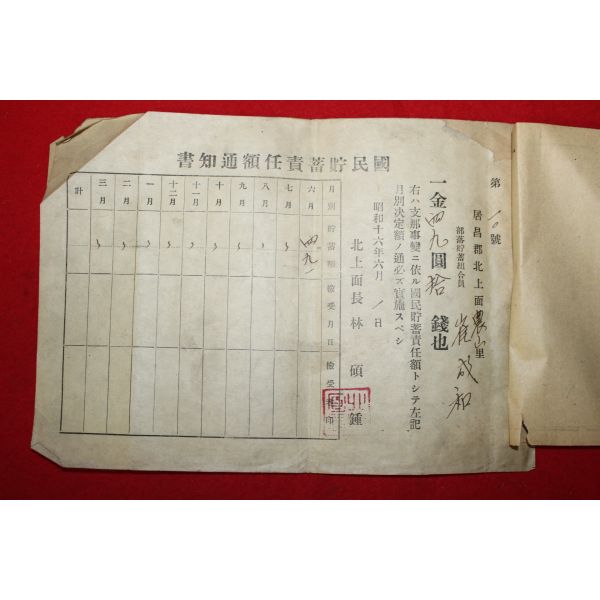 國民貯蓄責任額通知書
第一〇號
居昌郡北上面農山里
部落貯蓄組合員
崔成和
一金四九圓拾錢也
右ハ支那事變ニ依ル國民貯蓄責任額トシテ左記
月別決定額ノ通必ズ實施スベシ
昭和十六年六月 日
北上面長 林碩鍾
月別 貯蓄額 檢受月日 檢受者印
六月 四九一
七月 〃
八月 〃
九月 〃
十月 〃
十一月 〃
十二月 〃
一月 〃
二月 〃
三月 〃
計